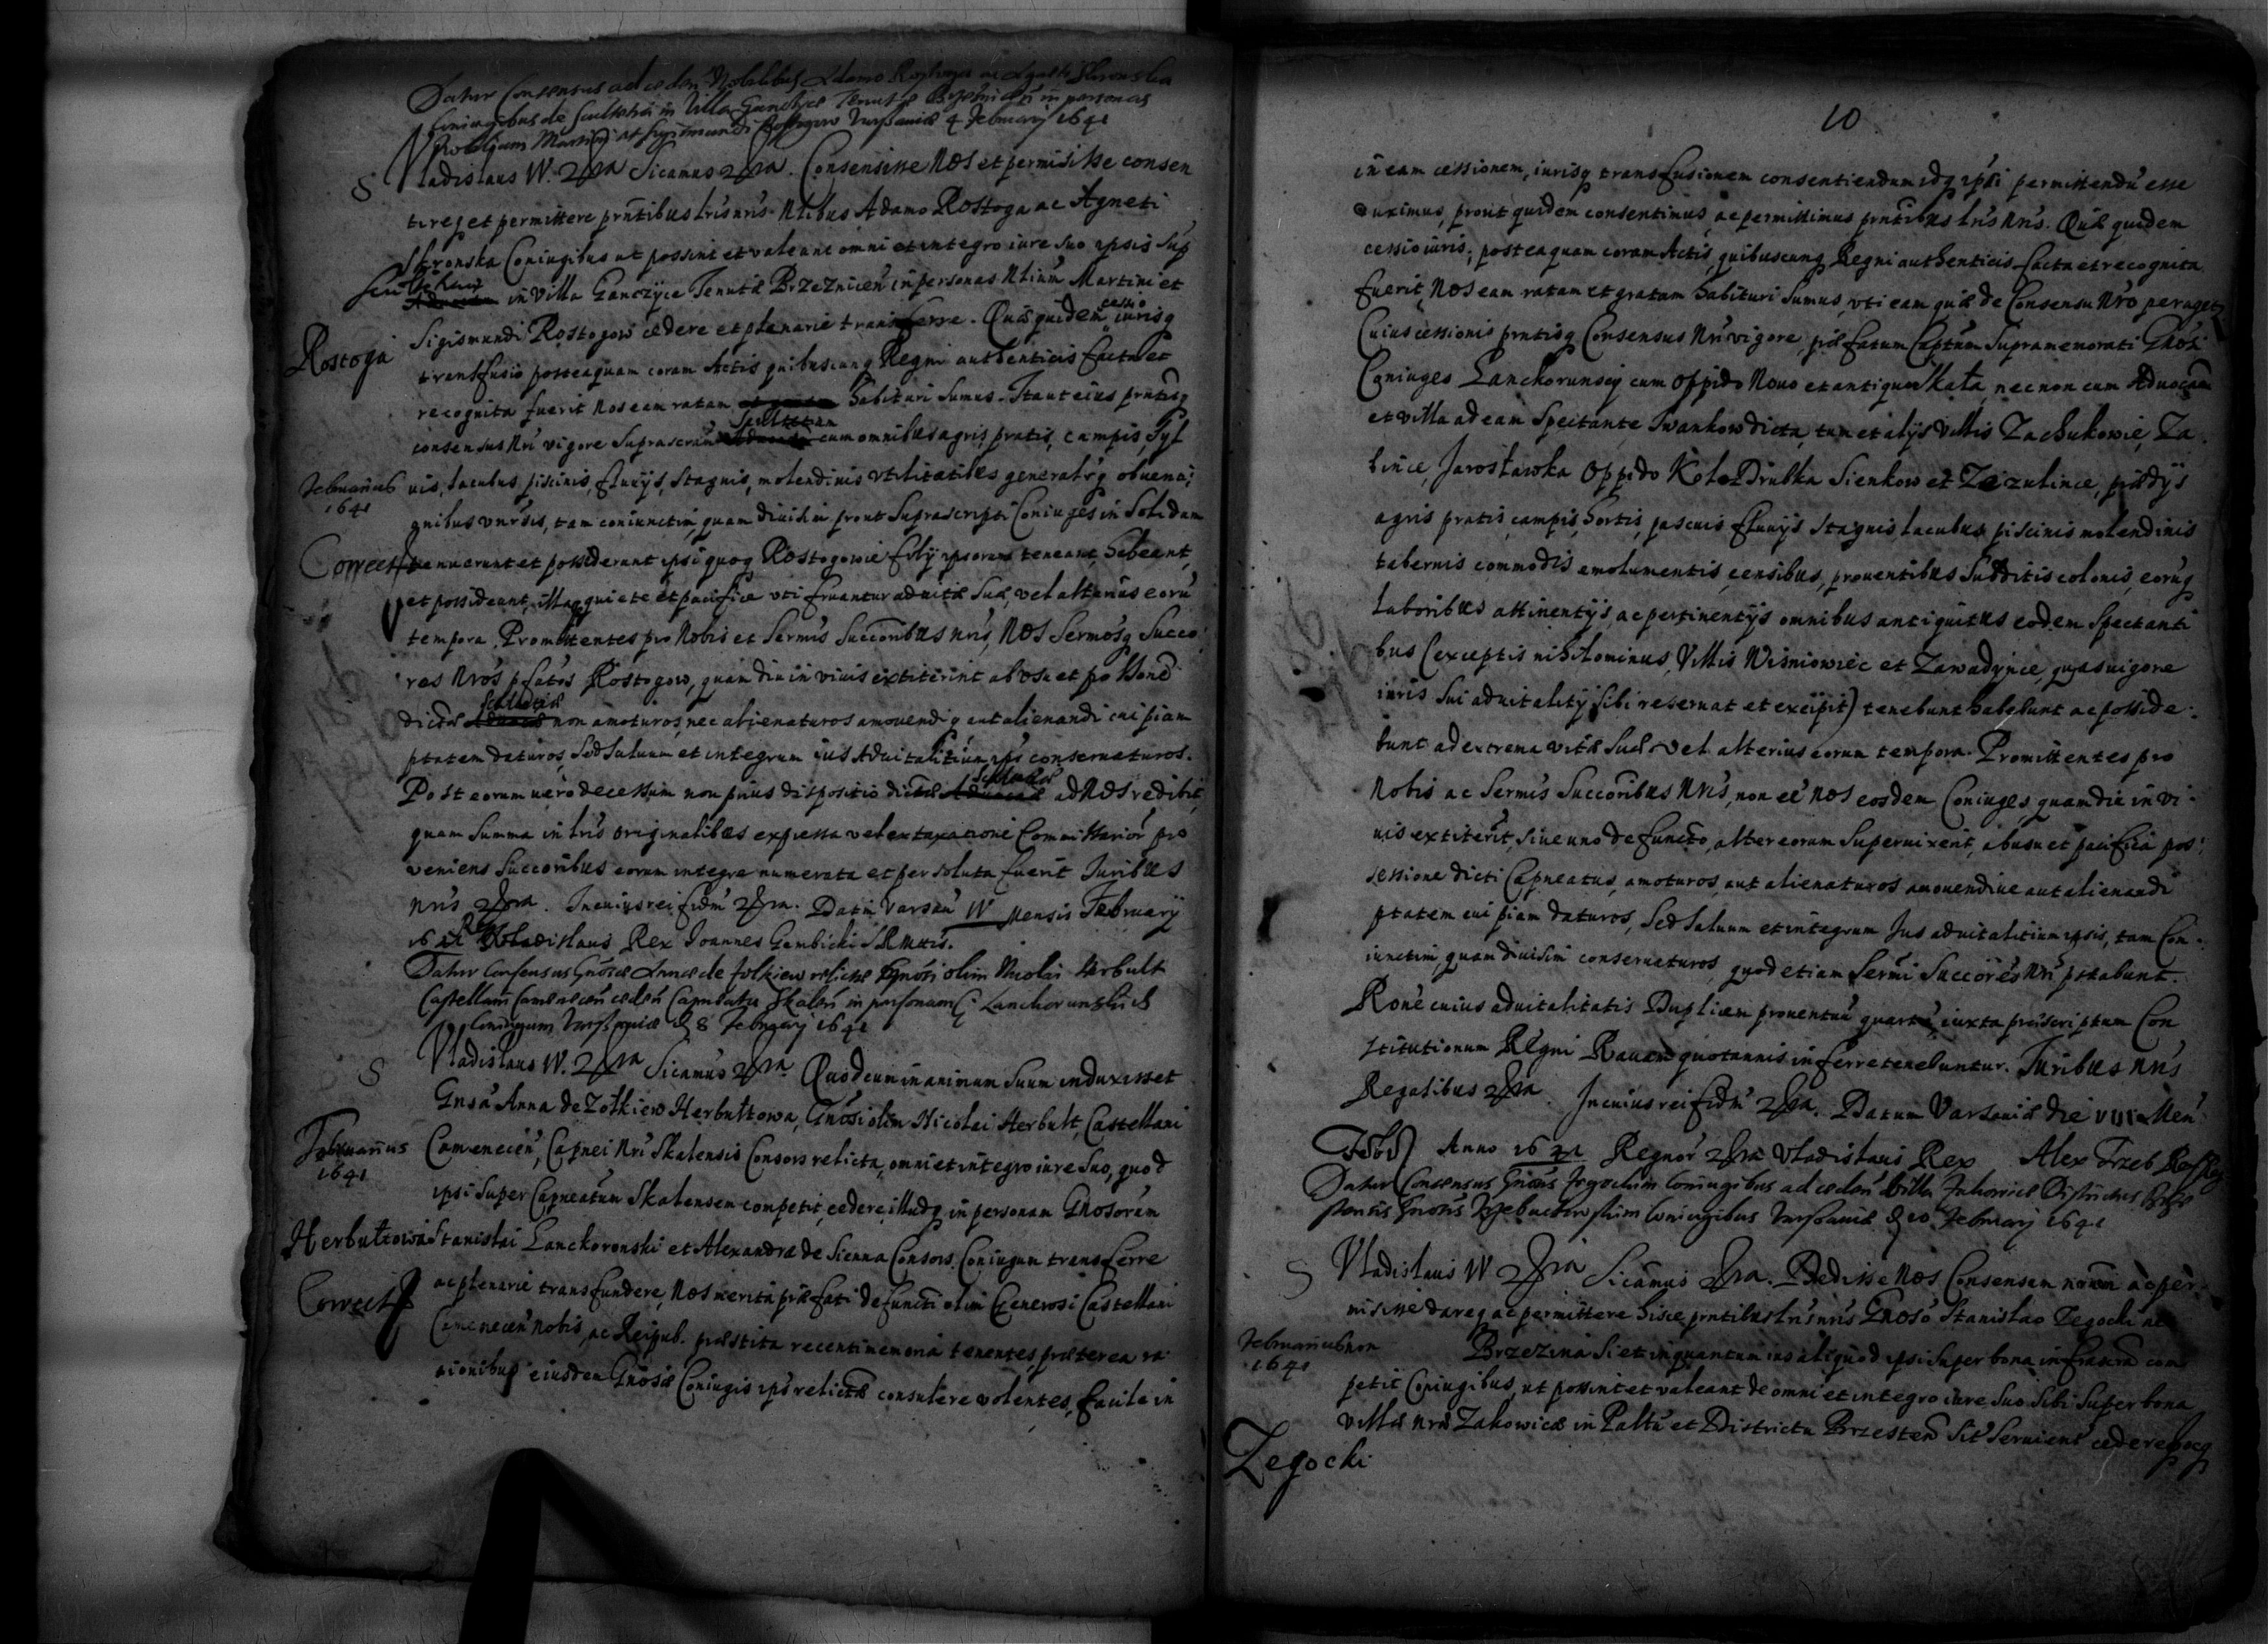 Datur Consensus ad ceden Nobilibus Adamo Rostoga ac Agneti Skronska
Coniugibus de Scultetia in Villa Ganczyce Tenutæ Brzeznicen in personas
Nobilium Martini et Sigismundi Rostogow Varsaviæ 4 February 1641
S
Vladislaus W. &ra Sicamus &ra. Consensisse Nos et permisisse consen
tireq et permittere pñtibus lris nris Nlibus Adamo Rostoga ac Agneti
Skronska Coniugibus ut possint et valeant omni et integro iure suo ipsis sup
in Villa Ganczyce Tenutæ Brzeznicen in personas Nlium Martini et
Rostoga
Sigismundi Rostogow cedere et plenarie transferre. Quæ quidem cessio iurisq
transfusio posteaquam coram Actis quibuscunq Regni authenticis facta et
recognita fuerit Nos eam ratam habituri sumus. Ita ut eius pñtisq
consensus Nri vigore suprascram Scultetiam cum omnibus agris, pratis, campis, syl
Februarius
1641
uis, lacubus, piscinis, fluuijs, stagnis, molendinis utilitatibus generalrq obuenti,
onibus vnrsis, tam coniunctim, quam diuisim prout suprascripti Coniuges in solidum
Correct
tenuerunt et possiderunt ipsi quoq Rostogowie filij ipsorum teneant, habeant,
et possideant, illaq quiete et pacifice uti fruantur ad uitæ suæ, vel alterius eoru
tempora. Promittentes pro Nobis et Sermis Succoribus nris, Nos Sermosq Succo
res Nros pfatos Rostogow, quamdiu in viuis extiterint ab usu et possione
dictæ Scultetiæ non amoturos, nec alienaturos amouendiq aut alienandi cui piam
ptatem daturos, sed saluum et integrum ius Aduitalitium ips conseruaturos.
Post eorum uero decessum non prius dispositio dictæ Scultetiæ ad Nos redibit,
quam summa in lris originalibus expressa vel ex taxatione Commissarior pro
veniens Succoribus eorum integre numerata et persoluta fuerit Iuribus
nris &ra. In cuius rei fidm &ra. Datum Varsau IV Mensis February
1641 Vladislaus Rex Joannes Gembicki S R Mtis.
Datur Consensus Gnosæ Annæ de Zolkiew relictæ Gnosi olim Nicolai Herbult
Castellani Camenecen ceden Capneatu Skalen in personam G. Lanckorunskich
Coniugum Varsaviæ d 8 February 1641
S
Vladislaus W. &ra Sicamus &ra. Quod cum in animum suum induxisset
Gnsa Anna de Zołkiew Herbultowa, Gnosi olim Nicolai Herbult, Castellani
Februarius
1641
Camenecen, Capnei Nri Skalensis Consors relicta, omni et integro iure suo, quod
ipsi super Capneatum Skalensem competit, cedere, illudq in personam Gnosorum
Herbultowa
Stanislai Lanckoronski et Alexandræ de Sienna Consors. Coniugum transferre
Correct
ac plenarie transfundere, Nos merita præfati defuncti olim Generosi Castellani
Camenecen nobis, ac Reipub. præstita recenti memoria tenentes, præterea ra
tionibus eiusdem Gnosæ Coniugis ips relictæ consulere volentes, facile in
10
in eam cessionem, iurisq transfusionem consentiendum idq ipsi permittendu esse
duximus, prout quidem consentimus, ac permittimus pñtibus lris nris. Quæ quidem
cessio iuris, posteaquam coram Actis, quibuscunq Regni authenticis facta et recognita
fuerit, Nos eam ratam et gratam habituri sumus, uti eam quæ de Consensu Nro peraget
Cuius cessionis pñtisq Consensus Nri vigore, præfatum Captum supramemorati Gnosi
Coniuges Lanckorunscy cum Oppido Nouo et antiquo Skała, nec non cum Aduocam
et villa ad eam spectante Iwankow dicta, tum et alijs Villis Zachukowie, Za
lince, Jarosławka Oppido Kołodrubka Sienkow et Zezulince, prædijs
agris pratis, campis, hortis, pascuis fluuijs stagnis lacubus piscinis molendinis
tabernis commodis emolumentis, censibus, prouentibus subditis colonis, eorũq
laboribus attinentijs, ac pertinentijs omnibus antiquitus eodem spectanti
bus (exceptis nihilominus, Villis Wisniowiec et Zawadynce, quas uigore
iuris sui aduitalitij sibi reseruat et excipit) tenebunt habebunt ac posside
bunt ad extrema vitæ suæ vel alterius eorum tempora. Promittentes pro
Nobis ac Sermis Succoribus Nris, non ee nos eosdem Coniuges, quamdiu in vi
uis extiterit, siue uno defuncto, alter eorum superuixerit, ab usu et pacifica pos
sessione dicti Capneatus, amoturos, aut alienaturos amouendiue aut alienandi
ptatem cui piam daturos, sed saluum et integrum Jus aduitalitium ipsis, tam con
iunctim, quam diuisim conseruaturos, quod etiam Sermi Succores Nri pstabunt.
Rone cuius aduitalitatis Duplicem prouentuu quartã, iuxta præscriptum Con
stitutionum Regni Rauam quotannis inferre tenebuntur. Iuribus nris
Regalibus &ra. In cuius rei fidm &ra. Datum Varsauiæ die VIII Men
Febr Anno 1641 Regnor &ra Vladislaus Rex Alex Trzeb
Datur Consensus Gnosis Zegockim Coniugibus ad ceden Villa Zakowicæ Districtus Brze
stensis Gnosis Coniugibus Varsaviæ d 20 February 1641
S
Vladislaus W &ra Sicamus &ra. Dedisse Nos Consensum nrum ac per
misisse dareq ac permittere hisce pñtibus lris nris Gnoso Stanislao Zegocki ac
Februarius
1641
non Brzezina si et in quantum ius aliquod ipsi super bona infrascra com
petit Coniugibus, ut possint et valeant de omni et integro iure suo sibi super bona
villæ nræ Zakowicæ in Paltu et Districtu Brzesten sit seruient cedere
Zegocki